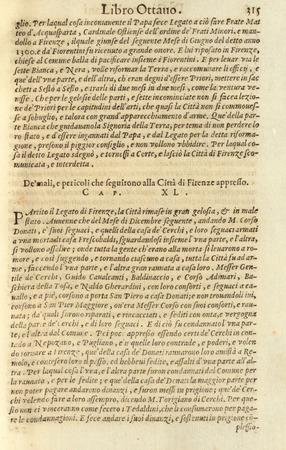 Libro Ottauo. 315
glio. Per laqual cosa incontanente il Papa fece Legato a ciò fare Frate Mat
teo d'Acquasparta, Cardinale Ostiense dell'ordine de' Frati Minori, e man-
dollo a Firenze, ilquale giunse del seguente Mese di Giugno del detto anno
1300. e da' Fiorentini fu riceuuto a grande onore. E lui riposato in Firenze,
chiese al Comune balìa di pacificare insieme i Fiorentini. E per leuar via le
sette Bianca, e Nera, volle riformar la Terra, e raccomunare li vffici, e
que' dell'vna parte, e dell'altra, ch'eran degni d'essere Priori, mettere in sac
chetti a Sesto a Sesto, e trarli di due mesi in due mesi, come la ventura ve-
nisse. Che per le gelosie delle parti, e sette incominciate non si facea lezione
de' Priori per le capitudini dell'arti, che quasi la Città non si commoues-
se a sobuglio, e talora con grand'apparecchiamento d'arme. Que' della par-
te Bianca che guidauano la Signoria della Terra, per tema di non perdere lo
ro stato, e d'essere ingannati dal Papa, e dal Legato per la detta riforma-
gione, presono il piggior consiglio, e non vollono vbbidire. Per laqual co-
sa il detto Legato sdegnò, e tornossi a Corte, e lasciò la Città di Firenze sco-
municata, e interdetta.
De' mali, e pericoli che seguitono alla Città di Firenze appresso.
CAP. XL.
PArtito il Legato di Firenze, la Città rimase in gran gelosa, & in male
stato. Auuenne che del Mese di Dicembre seguente, andando M. Corso
Donati, e' suoi seguaci, e quelli della casa de' Cerchi, e loro seguaci armati
a vna mortadi casa Frescobaldi, sguardandosi insieme l'vna parte, e l'altra,
si vollono assalire; onde tutta la gente ch'erano alla morta si leuarono a romo-
re, e così fuggendo, e tornando ciascuno a casa, tutta la Città fu ad ar-
me, faccendo l'vna parte, e l'altra gran raunata a casa loro. Messer Gen-
tile de' Cerchi, Guido Caualcanti, Baldinaccio, e Corso Adimari, Ba-
schiera della Tosa, e Naldo Gherardini, con loro consorti, e seguaci a ca-
uallo, e a piè, corsono a porta San Piero a casa Donati; e non trouandoli iui,
corsono a San Pier Maggiore, ou'era Messer Corso con suoi consorti, e rau-
nata; da' quali furono riparati, e rincacciati, e fediti con onta, e vergogna
della parte de' cerchi, e di loro seguaci. E di ciò fu condannata l'vna par-
te, e l'altra dal Comune. Poi poco appresso essendo certi de' Cerchi in con-
tado a Nepozano, e Pugliano, e 'n quelle loro contrade, e poderi, e volen-
dosi tornare a Firenze, que' della casa de' Donati raunarono loro amistà a Re-
mole, e concesero loro il passo, ed hebbeui fedite, e assalti d'vna parte, e d'al-
tra. Per laqual cosa l'vna, e l'altra parte furono condannati del Comune per
la raunata, e per le fedite; e que' della casa de' Donati la maggior parte per
non poter pagare andarono dinanzi, e furon messi in pregione; que' de' Cer-
chi volendo fare al loro essemplo, dicendo M. Torigiano di Cerchi. Per que-
sto non ci vinceranno come fecero i Tedaldini, che li consumarono per paga-
re le condannagioni. E fece andare i suoi dinanzi, e sostenuti in pregione co'
plessio-